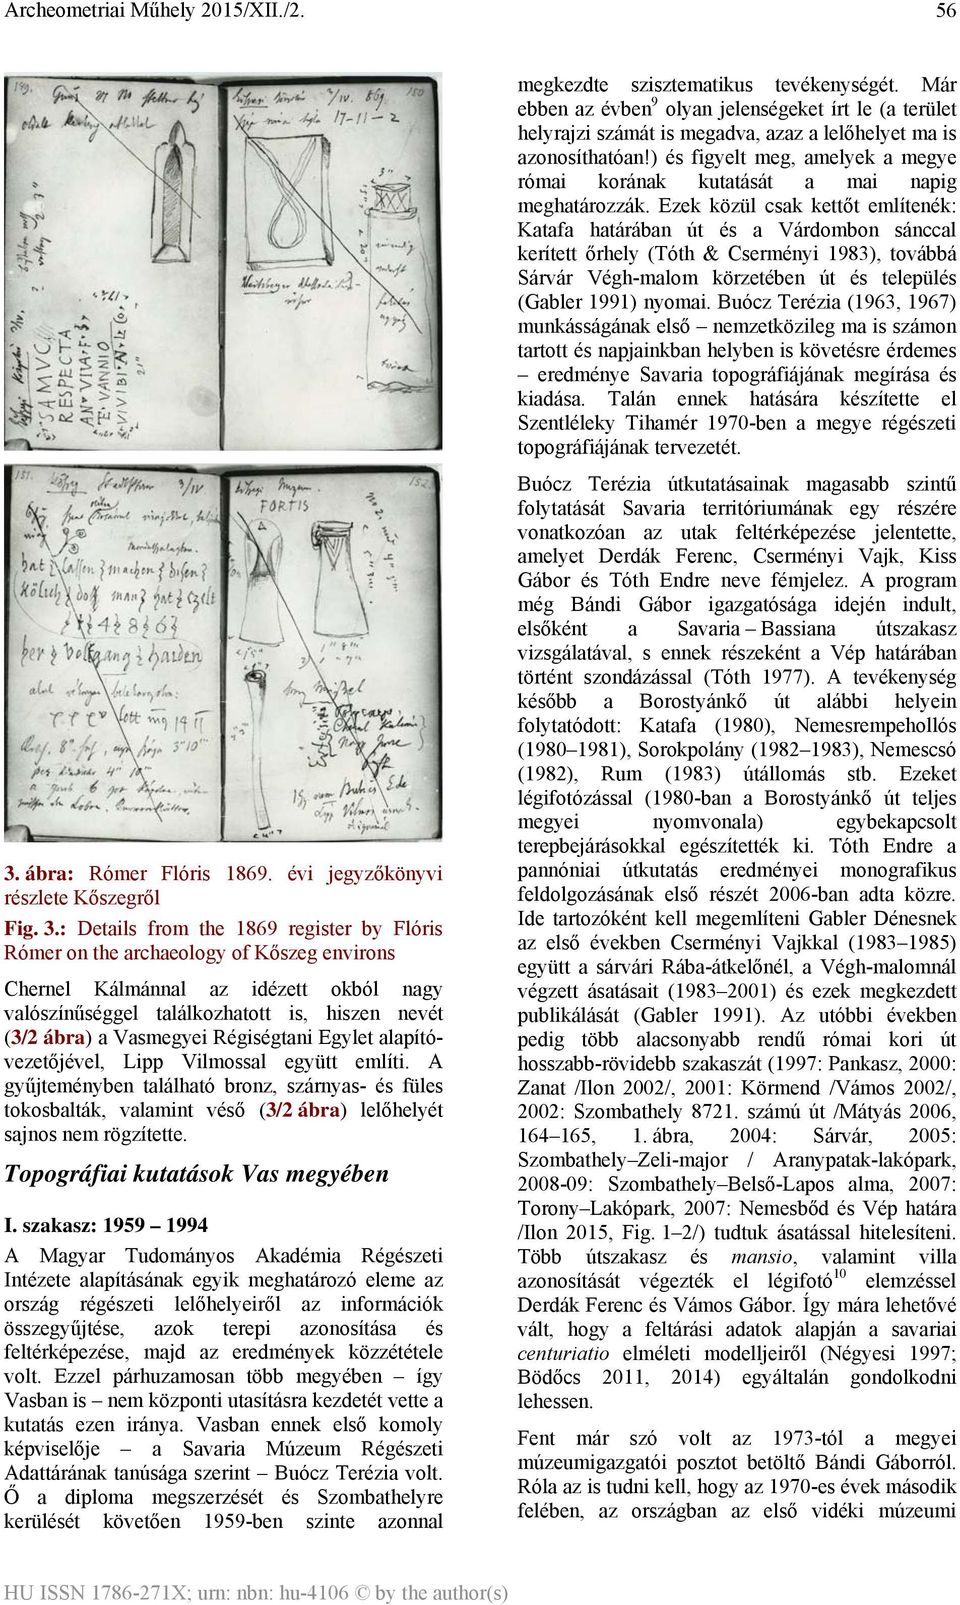 Archeometriai Műhely 2015/XII./2.
56
149.
3/IV. 869. 150
17-11-2
SAMVC
RESPECTA
AN·VIIA·F·
E·VANNIO
VIVIBI
151.
3/IV
152.
FORTIS
hat lassen machen disen
Kölich doss man hat czelt
1486
her Wolfgang harden
3. ábra: Rómer Flóris 1869. évi jegyzőkönyvi
részlete Kőszegről
Fig. 3.: Details from the 1869 register by Flóris
Rómer on the archaeology of Kőszeg environs
Chernel Kálmánnal az idézett okból nagy
valószínűséggel találkozhatott is, hiszen nevét
(3/2 ábra) a Vasmegyei Régiségtani Egylet alapító-
vezetőjével, Lipp Vilmossal együtt említi. A
gyűjteményben található bronz, szárnyas- és füles
tokosbalták, valamint véső (3/2 ábra) lelőhelyét
sajnos nem rögzítette.
Topográfiai kutatások Vas megyében
I. szakasz: 1959 – 1994
A Magyar Tudományos Akadémia Régészeti
Intézete alapításának egyik meghatározó eleme az
ország régészeti lelőhelyeiről az információk
összegyűjtése, azok terepi azonosítása és
feltérképezése, majd az eredmények közzététele
volt. Ezzel párhuzamosan több megyében – így
Vasban is – nem központi utasításra kezdetét vette a
kutatás ezen iránya. Vasban ennek első komoly
képviselője – a Savaria Múzeum Régészeti
Adattárának tanúsága szerint – Buócz Terézia volt.
Ő a diploma megszerzését és Szombathelyre
kerülését követően 1959-ben szinte azonnal
megkezdte szisztematikus tevékenységét. Már
ebben az évben⁹ olyan jelenségeket írt le (a terület
helyrajzi számát is megadva, azaz a lelőhelyet ma is
azonosíthatóan!) és figyelt meg, amelyek a megye
római korának kutatását a mai napig
meghatározzák. Ezek közül csak kettőt említenék:
Katafa határában út és a Várdombon sánccal
kerített őrhely (Tóth & Cserményi 1983), továbbá
Sárvár Végh-malom körzetében út és település
(Gabler 1991) nyomai. Buócz Terézia (1963, 1967)
munkásságának első – nemzetközileg ma is számon
tartott és napjainkban helyben is követésre érdemes
– eredménye Savaria topográfiájának megírása és
kiadása. Talán ennek hatására készítette el
Szentléleky Tihamér 1970-ben a megye régészeti
topográfiájának tervezetét.
Buócz Terézia útkutatásainak magasabb szintű
folytatását Savaria territóriumának egy részére
vonatkozóan az utak feltérképezése jelentette,
amelyet Derdák Ferenc, Cserményi Vajk, Kiss
Gábor és Tóth Endre neve fémjelez. A program
még Bándi Gábor igazgatósága idején indult,
elsőként a Savaria – Bassiana útszakasz
vizsgálatával, s ennek részeként a Vép határában
történt szondázással (Tóth 1977). A tevékenység
később a Borostyánkő út alábbi helyein
folytatódott: Katafa (1980), Nemesrempehollós
(1980–1981), Sorokpolány (1982–1983), Nemescsó
(1982), Rum (1983) útállomás stb. Ezeket
légifotózással (1980-ban a Borostyánkő út teljes
megyei nyomvonala) egybekapcsolt
terepbejárásokkal egészítették ki. Tóth Endre a
pannóniai útkutatás eredményei monografikus
feldolgozásának első részét 2006-ban adta közre.
Ide tartozóként kell megemlíteni Gabler Dénesnek
az első években Cserményi Vajkkal (1983–1985)
együtt a sárvári Rába-átkelőnél, a Végh-malomnál
végzett ásatásait (1983–2001) és ezek megkezdett
publikálását (Gabler 1991). Az utóbbi években
pedig több alacsonyabb rendű római kori út
hosszabb-rövidebb szakaszát (1997: Pankasz, 2000:
Zanat /Ilon 2002/, 2001: Körmend /Vámos 2002/,
2002: Szombathely 8721. számú út /Mátyás 2006,
164–165, 1. ábra, 2004: Sárvár, 2005:
Szombathely–Zeli-major / Aranypatak-lakópark,
2008-09: Szombathely–Belső-Lapos alma, 2007:
Torony–Lakópark, 2007: Nemesbőd és Vép határa
/Ilon 2015, Fig. 1–2/) tudtuk ásatással hitelesíteni.
Több útszakasz és mansio, valamint villa
azonosítását végezték el légifotó¹⁰ elemzéssel
Derdák Ferenc és Vámos Gábor. Így mára lehetővé
vált, hogy a feltárási adatok alapján a savariai
centuriatio elméleti modelljeiről (Négyesi 1997;
Bödőcs 2011, 2014) egyáltalán gondolkodni
lehessen.
Fent már szó volt az 1973-tól a megyei
múzeumigazgatói posztot betöltő Bándi Gáborról.
Róla az is tudni kell, hogy az 1970-es évek második
felében, az országban az első vidéki múzeumi
HU ISSN 1786-271X; urn: nbn: hu-4106 © by the author(s)